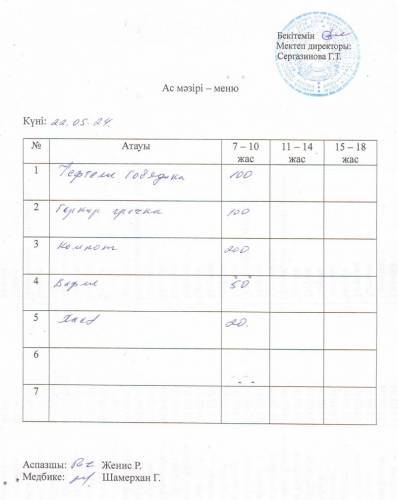 Бекітемін
Мектеп директоры:
Сергазинова Г.Т.
Ас мәзірі – меню
Күні: 22.05.24.
№ Атауы 7 – 10 жас 11 – 14 жас 15 – 18 жас
1 Тефтели говядина 100
2 Гарнир гречка 100
3 Компот 200
4 Вафле 50
5 Хлеб 20.
6
7
Аспазшы: Женис Р.
Медбике: Шамерхан Г.